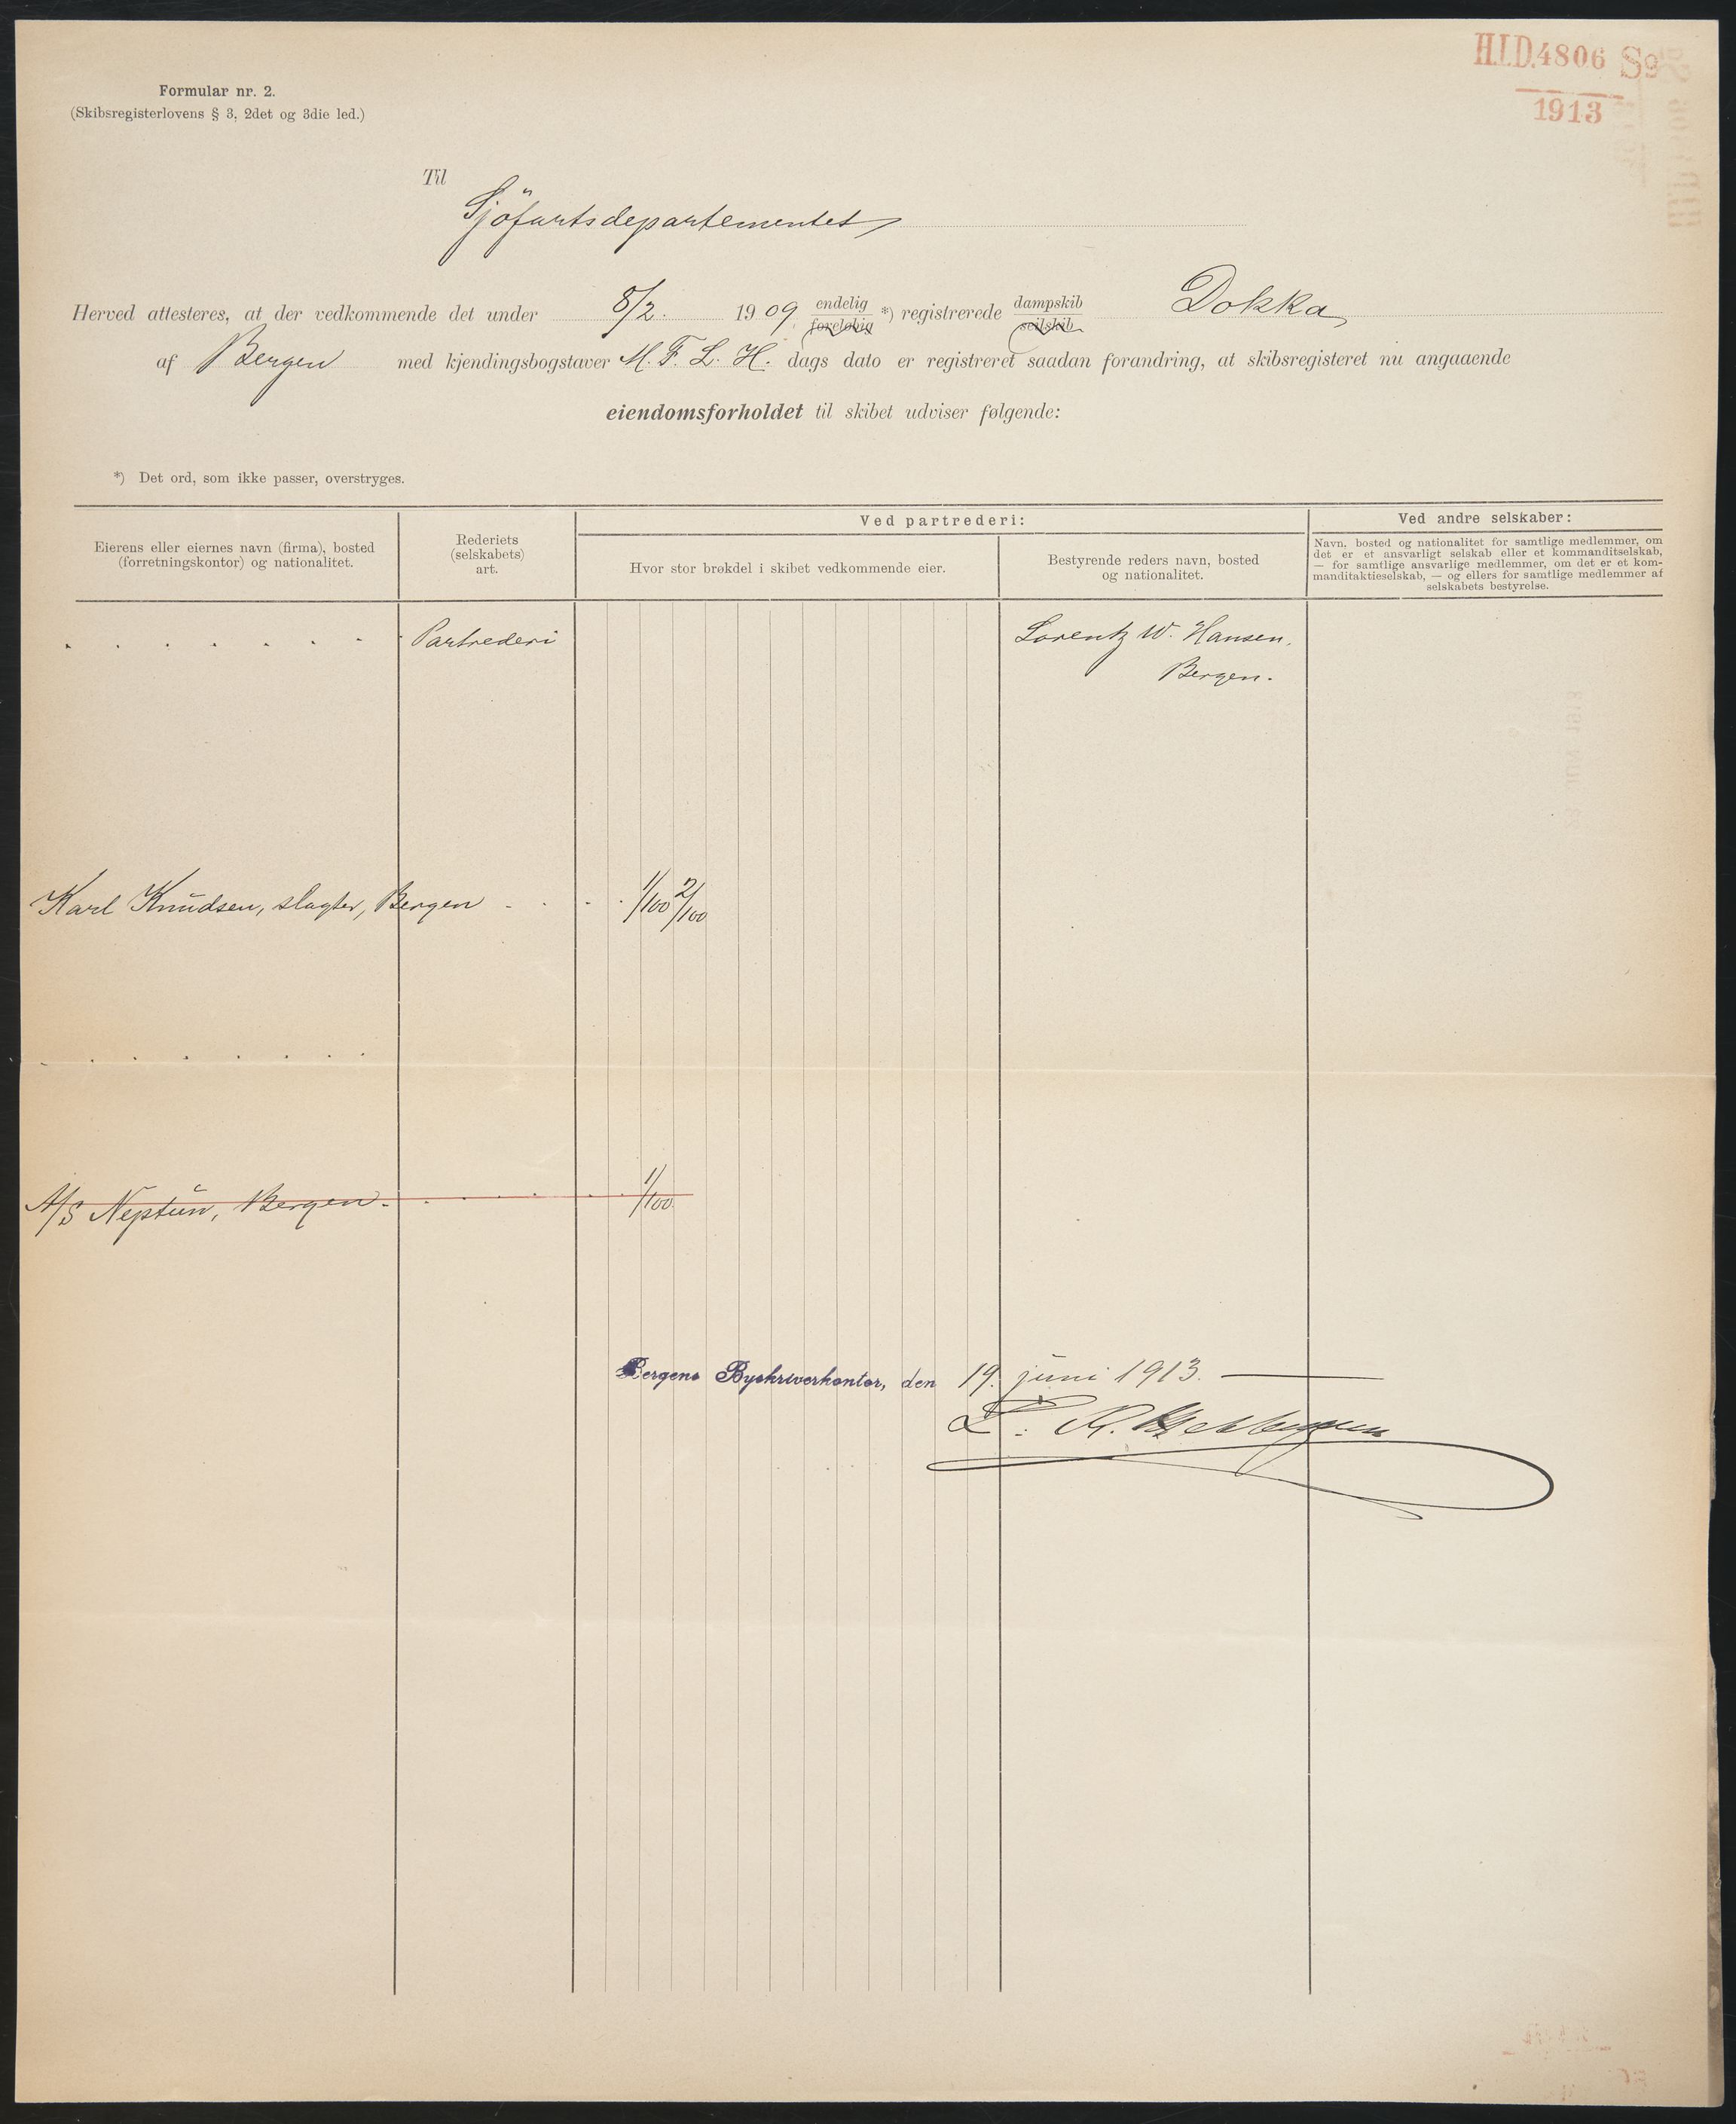 H.I.D. 4806 S9
1913
Formular nr. 2.
(Skibsregisterlovens § 3, 2det og 3die led.)
Til
Sjöfartsdepartementet
Herved attesteres, at der vedkommende det under 8/2. 1909 endelig foreløbig *) registrerede dampskib seilskib Dokka
af Bergen med kjendingsbogstaver M. F. L. H. dags dato er registreret saadan forandring, at skibsregisteret nu angaaende
eiendomsforholdet til skibet udviser følgende:
*) Det ord, som ikke passer, overstryges.
Eierens eller eiernes navn (firma), bosted
(forretningskontor) og nationalitet.
Rederiets
(selskabets)
art.
Ved partrederi:
Hvor stor brøkdel i skibet vedkommende eier.
Bestyrende reders navn, bosted
og nationalitet.
Ved andre selskaber:
Navn, bosted og nationalitet for samtlige medlemmer, om
det er et ansvarligt selskab eller et kommanditselskab,
— for samtlige ansvarlige medlemmer, om det er et kom-
manditaktieselskab, — og ellers for samtlige medlemmer af
selskabets bestyrelse.
Partrederi
Lorentz W. Hansen.
Bergen.
Karl Knudsen, slagter, Bergen 1/100 2/100
A/S Neptun, Bergen. 1/100
Bergens Byskriverkontor, den 19. juni 1913.